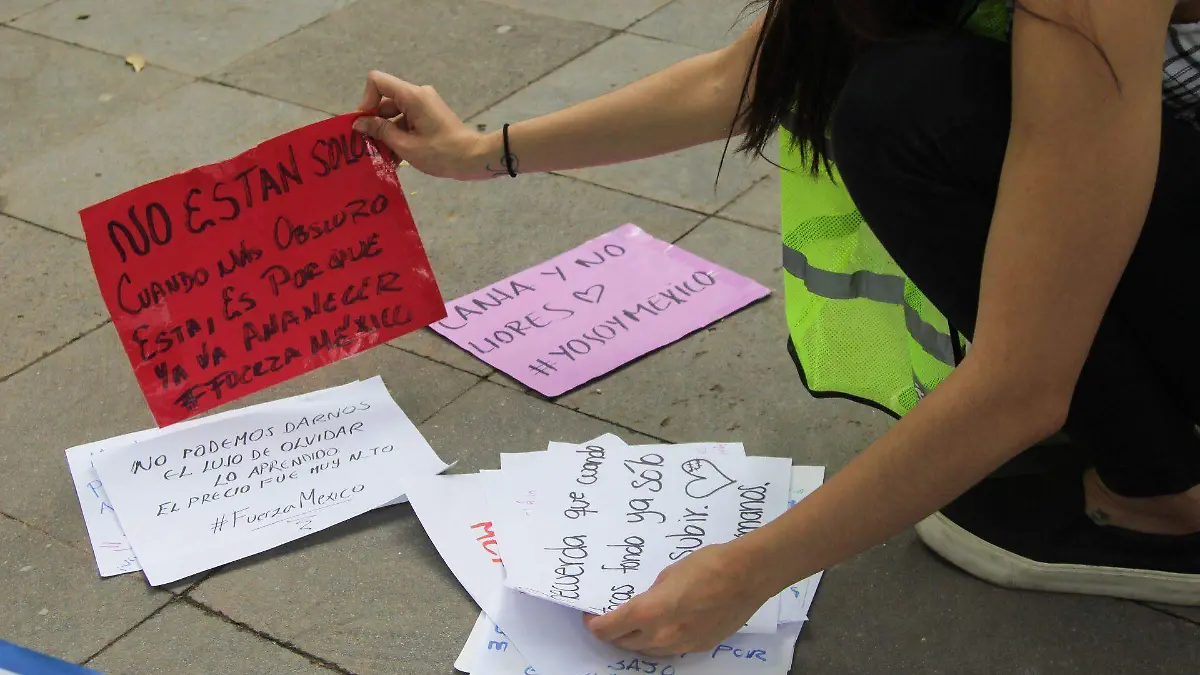 NO ESTAN SOLO
CUANDO MÁS OBSCURO
ESTA, ES POR QUE
YA VA AMANECER
#FUERZA MÉXICO
CANTA Y NO
LLORES
#YOSOYMEXICO
NO PODEMOS DARNOS
EL LUJO DE OLVIDAR
LO APRENDIDO
EL PRECIO FUE MUY ALTO
#FUERZA MEXICO
ecuerda que cuando
ocas fondo ya sólo
subir.
manos.
POR
BAJO